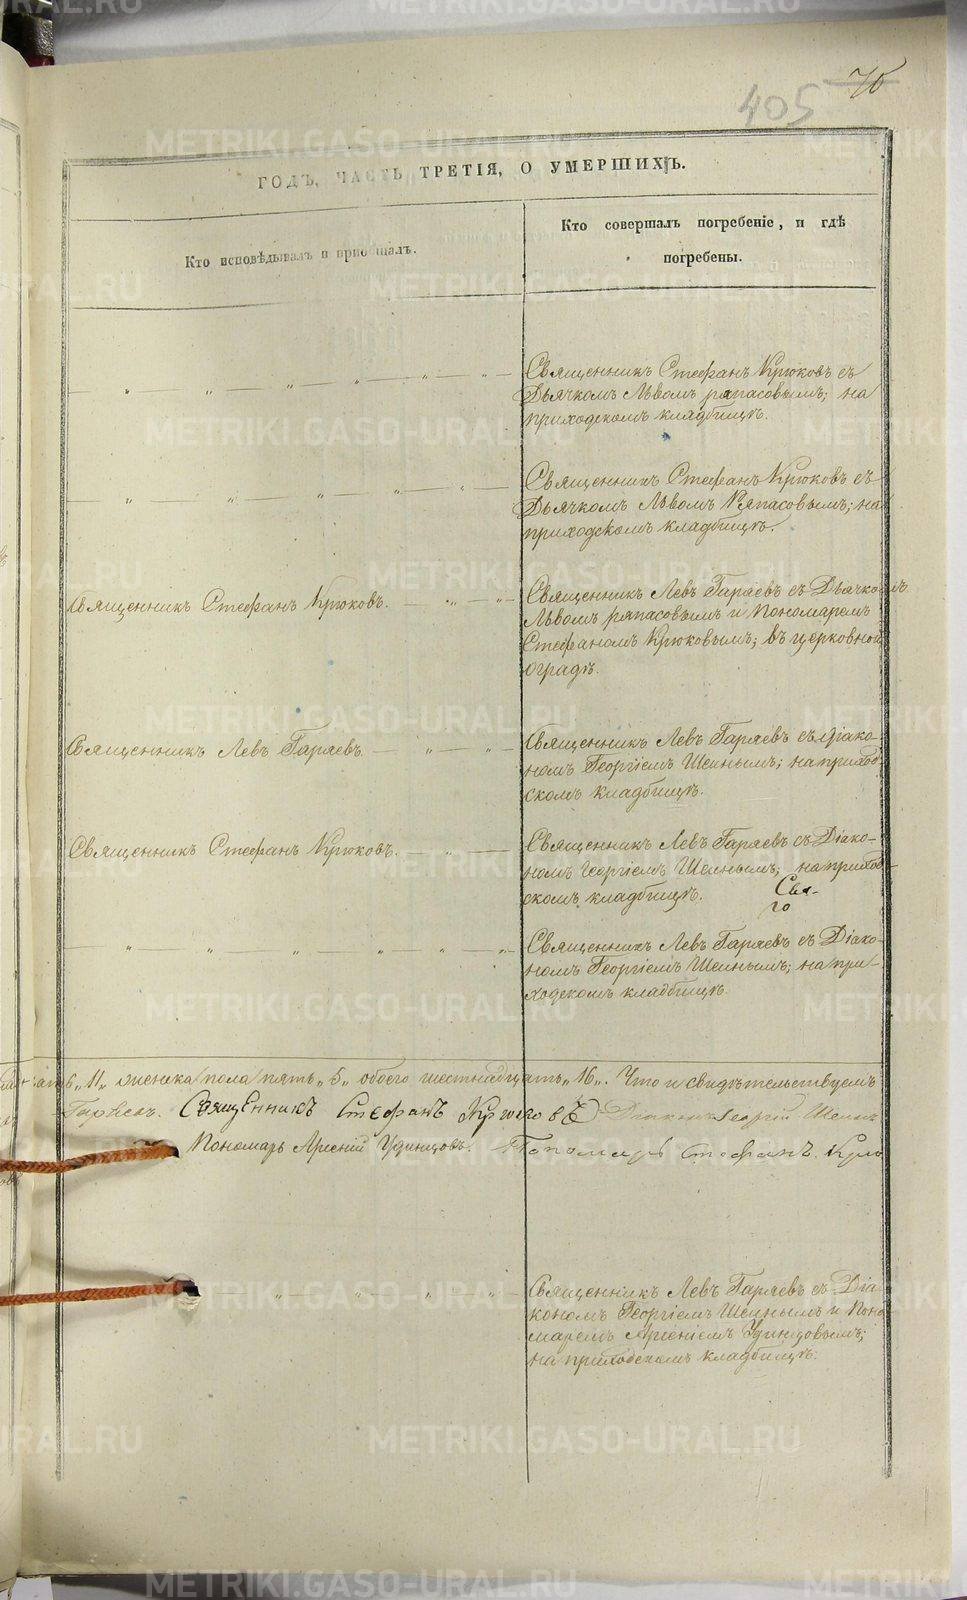 405 76
ГОДЪ, ЧАСТЬ ТРЕТІЯ, О УМЕРШИХЪ.
Кто исповѣдывалъ и пріобщалъ.
Кто совершалъ погребеніе, и гдѣ
погребены.
Священникъ Стефанъ Крюковъ съ
Дьячкомъ Львомъ ряпасовымъ; на
приходскомъ кладбищѣ.
Священникъ Стефанъ Крюковъ съ
Дьячкомъ Львомъ Ряпасовымъ; на
приходскомъ кладбищѣ.
Священникъ Стефанъ Крюковъ.
Священникъ Левъ Гаряевъ съ Дьячкомъ
Львомъ ряпасовымъ и Пономаремъ
Стефаномъ Крюковымъ; въ церковной
оградѣ.
Священникъ Левъ Гаряевъ.
Священникъ Левъ Гаряевъ съ Діако-
номъ Георгіемъ Шеинымъ; на приход-
скомъ кладбищѣ.
Священникъ Стефанъ Крюковъ.
Священникъ Левъ Гаряевъ съ Діако-
номъ Георгіемъ Шеинымъ; на приход-
скомъ кладбищѣ. Свя-
го
Священникъ Левъ Гаряевъ съ Діако-
номъ Георгіемъ Шеинымъ; на при-
ходскомъ кладбищѣ.
„11„ женска пола пять „5„ обоего шестнадцать „16„. Что и свидѣтельствуемъ
Гаряевъ. Священникъ Стефанъ Крюковъ Діаконъ Георгій Шеинъ
Пономарь Арсений Удинцовъ. Пономарь Стефанъ Крю
Священникъ Левъ Гаряевъ съ Діа-
кономъ Георгіемъ Шеинымъ и Поно
маремъ Арсеніемъ Удинцовымъ;
на приходскомъ кладбищѣ.
METRIKI.GASO-URAL.RU